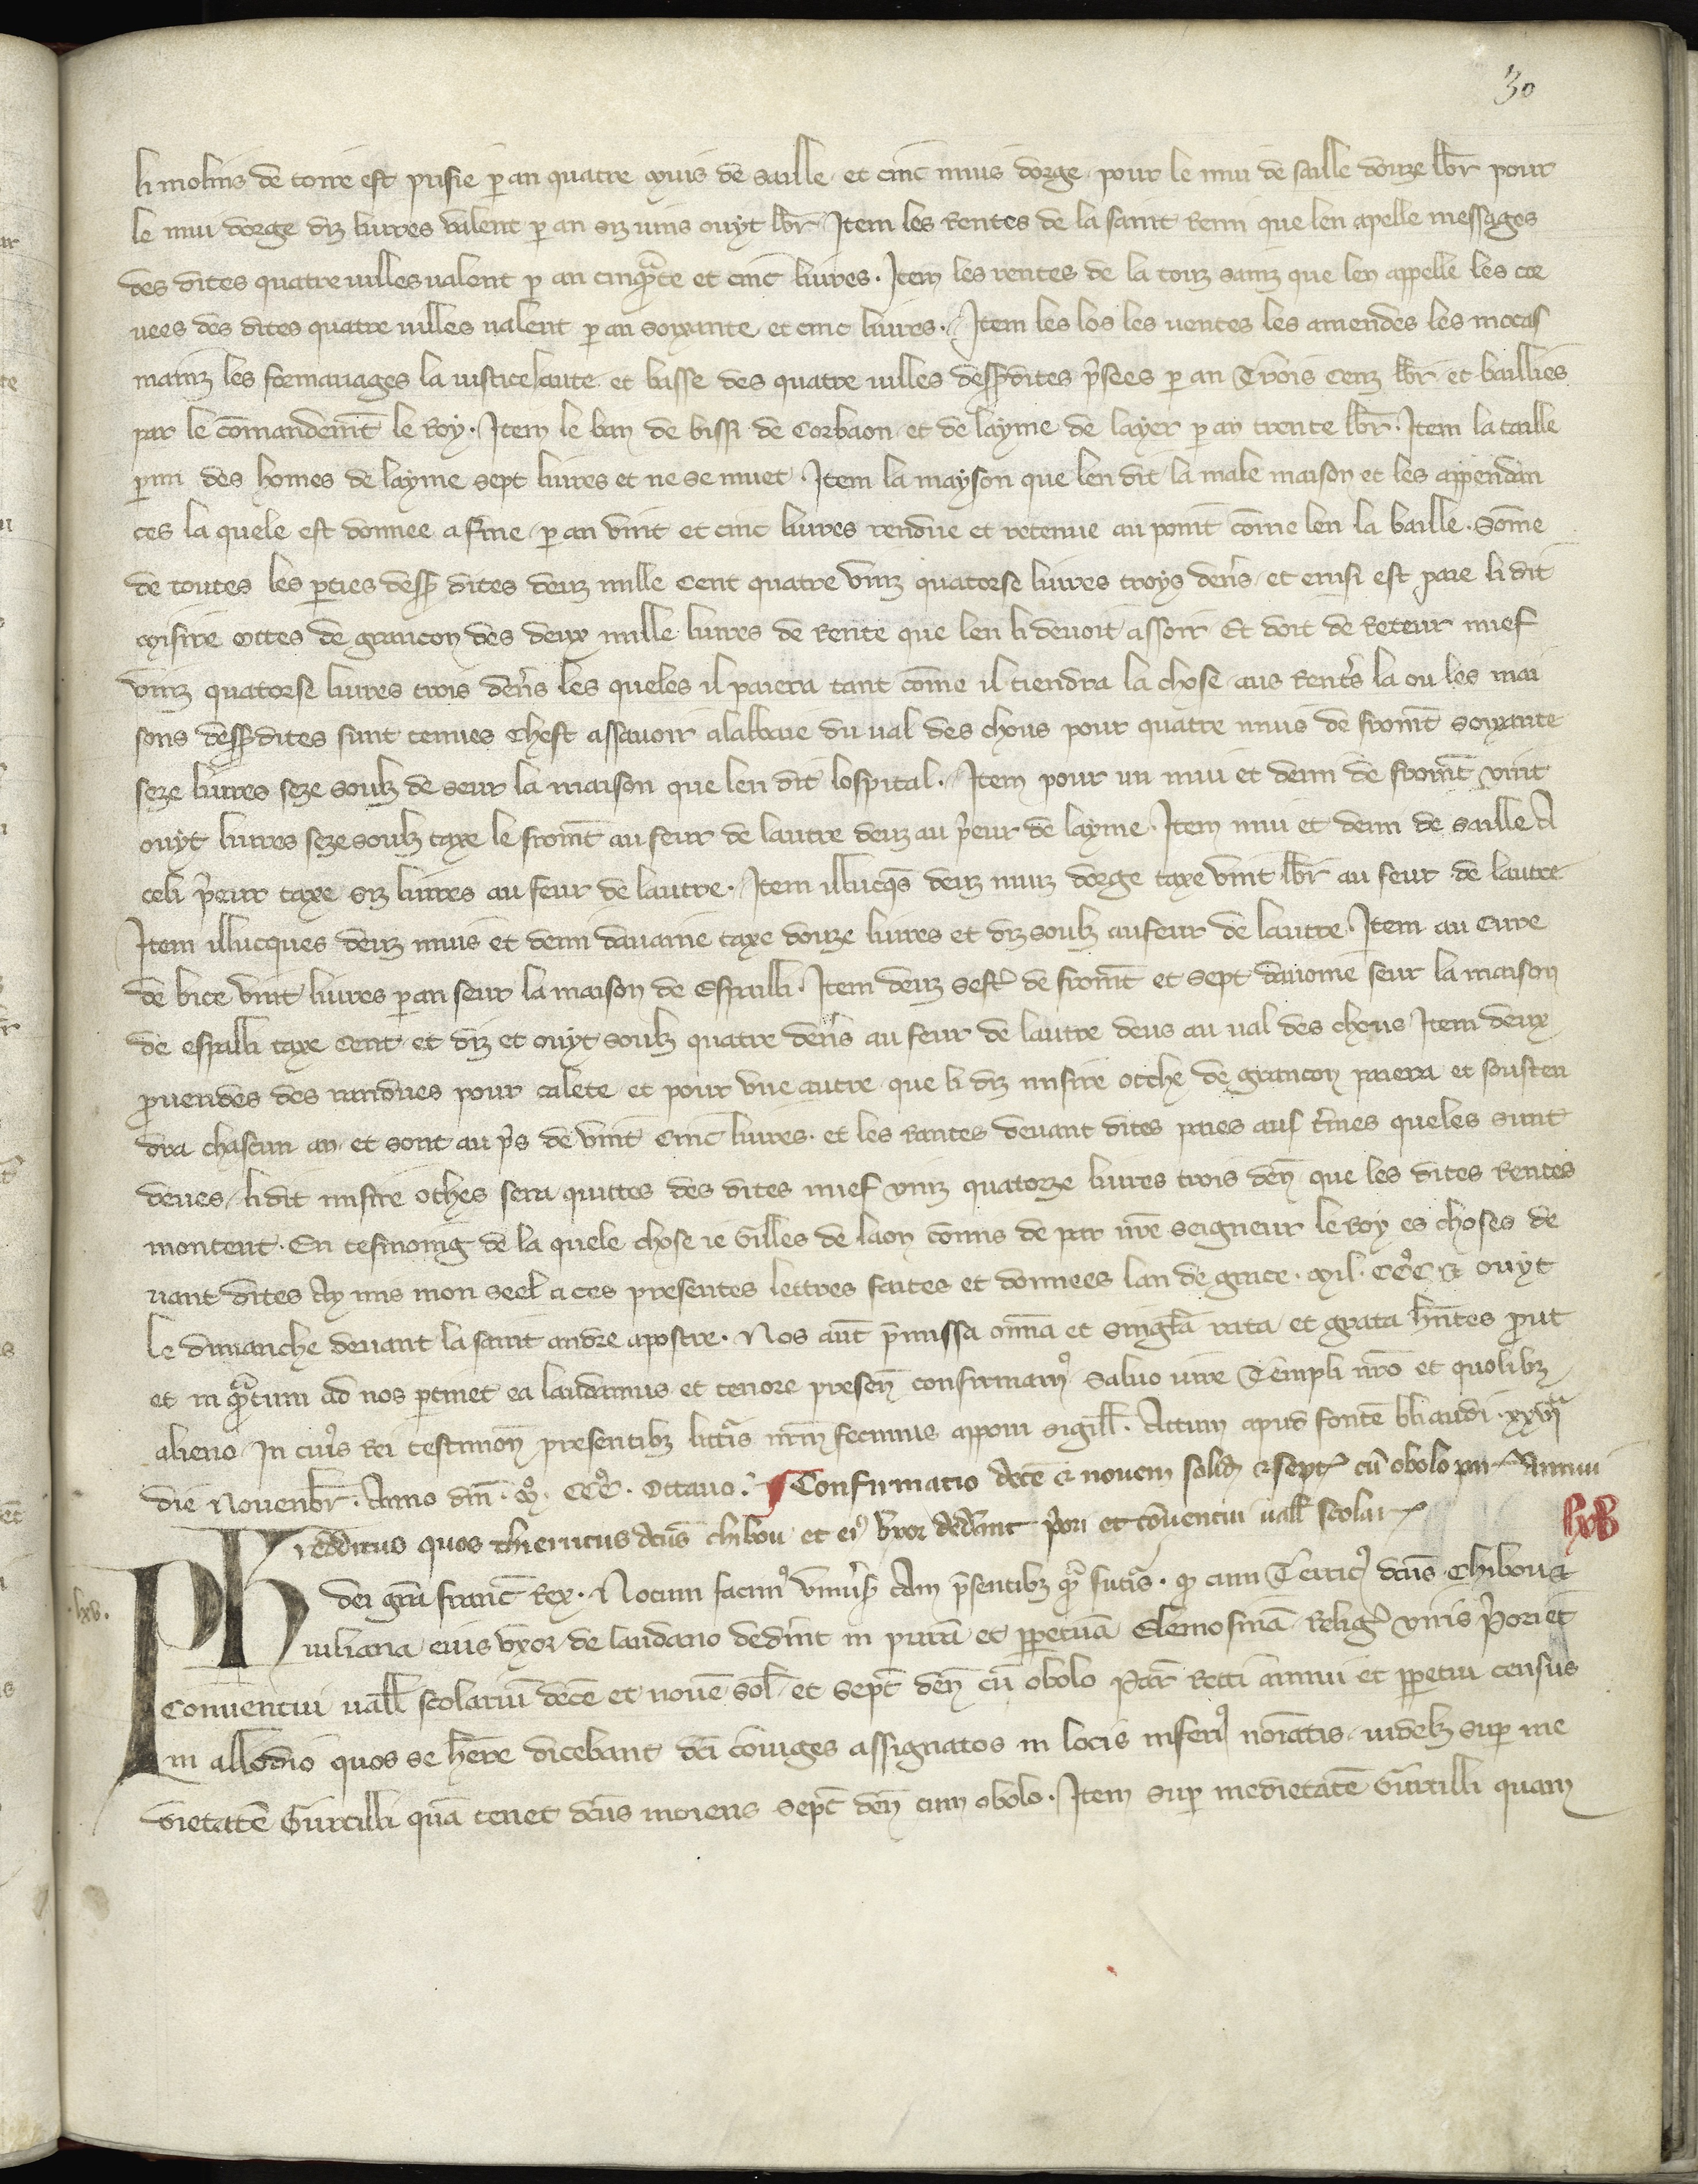 30
li molins de toire est prisie p an quatre muis de saille et cinc muis dorge pour le mui de saille douze lbr pour
le mui dorge diz liures valent p an siz vins ouyt lbr Item les Rentes de la saint Remi que len apelle messages
des dites quatre uilles ualent p an cinqrate et cinc liures. Item les rentes de la touz sainz que len appelle les coe
uees des dites quatre uilles ualent p an soixante et cinc liures. Item les los les uentes les amendes les
mainz les formariages la iustice haute et basse des quatre uilles desusdites prisees p an Trois Cenz lbr et baillies
par le comandement le Roy. Item le ban de bissi de Corbaon et de layme de layer p an trente lbr. Item la taille
des homes de layme sept liures et ne se muet. Item la mayson que len dit la male maison et les appendan
ces la quele est donnee a fine p an vint et cinc liures rendue et retenue au point come len la baille. Some
de toutes les pties desus dites deuz mille Cent quatre vinz quatorse liures troys deniers et ensi est paie li dit
misire ottes de grancon des deux mille liures de Rente que len li deuoit assoir Et doit de Retour nuef
vinz quatorse liures trois deniers les queles il paiera tant come il tiendra la chose aus Rentes la ou les mai
sons desusdites sunt tenues Chest assauoir alabbaie du ual des chous pour quatre muis de froment soixante
seze liures seze soulz de seur la maison que len dit lospital. Item pour un mui et demi de froment vint
ouyt liures seze soulz taxe le froment au feur de lautre deuz au preur de layme. Item mui et demi de saille A
celi preur taxe siz liures au feur de lautre. Item illucques deuz muiz dorge taxe vint lbr au feur de lautre
Item illucques deuz muis et demi dauaine taxe douze liures et diz soulz au feur de lautre. Item au Cure
de bice vint liures p an seur la maison de Espailli. Item deuz sest de froment et sept dauoine seur la maison
de espailli taxe Cent et diz et ouyt soulz quatre deniers au feur de lautre deus au ual des chous Item deux
prouendes des randues pour calete et pour vne autre que li diz misire otthe de grancon paiera et sousten
dra chascun an et sont au pris de vint Cinc liures. et les Rantes deuant dites paies aus termes queles sunt
deues li dit misire othes sera quittes des dites nuef vinz quatorze liures trois den que les dites Rentes
montent. En tesmoing de la quele chose ie Gilles de laon comis de par nre seigneur le Roy es choses de
uant dites Ay mis mon seel a ces presentes lettres faites et donnees lan de grace. Mil. CCC. & ouyt
le dimanche deuant la saint andre apostre. Nos aut pmissa omia et singla rata et grata hntes prout
et in qratum ad nos ptinet ea laudamus et tenore presen confirmam saluo iure Templi nro et quolibz
alieno In cuius Rei testimon presentibz littris nrm fecimus apponi sigill. Actum apud fonte bliaudi. xxvia
die Nouenbr. Anno dni. mo. CCCo. Octauo. Confirmacio dece & nouem solid & sept cu obolo par Annui
redditus quos thierricus dcus chibou et ei vxor dederunt priori et conuentui uall scolar
lxv
lxv.
Ph dei gra franc Rex. Notum facim vniuersis tam psentibz qr futis. q cum Teiric dcus Chibou &
iuliana eius vxor de laudano dedint in pura et ppetua Elemosina Relig viris Priori et
Conuentui uall scolariu dece et noue sol et sept den cu obolo par Recti annui et ppetui census
in allodio quos se here dicebant dci coniuges assignatos in locis inferi noiatis uidelz sup me
dietate Gurtilli qua tenet dcus morens sept den cum obolo. Item sup medietate Gurtilli quam